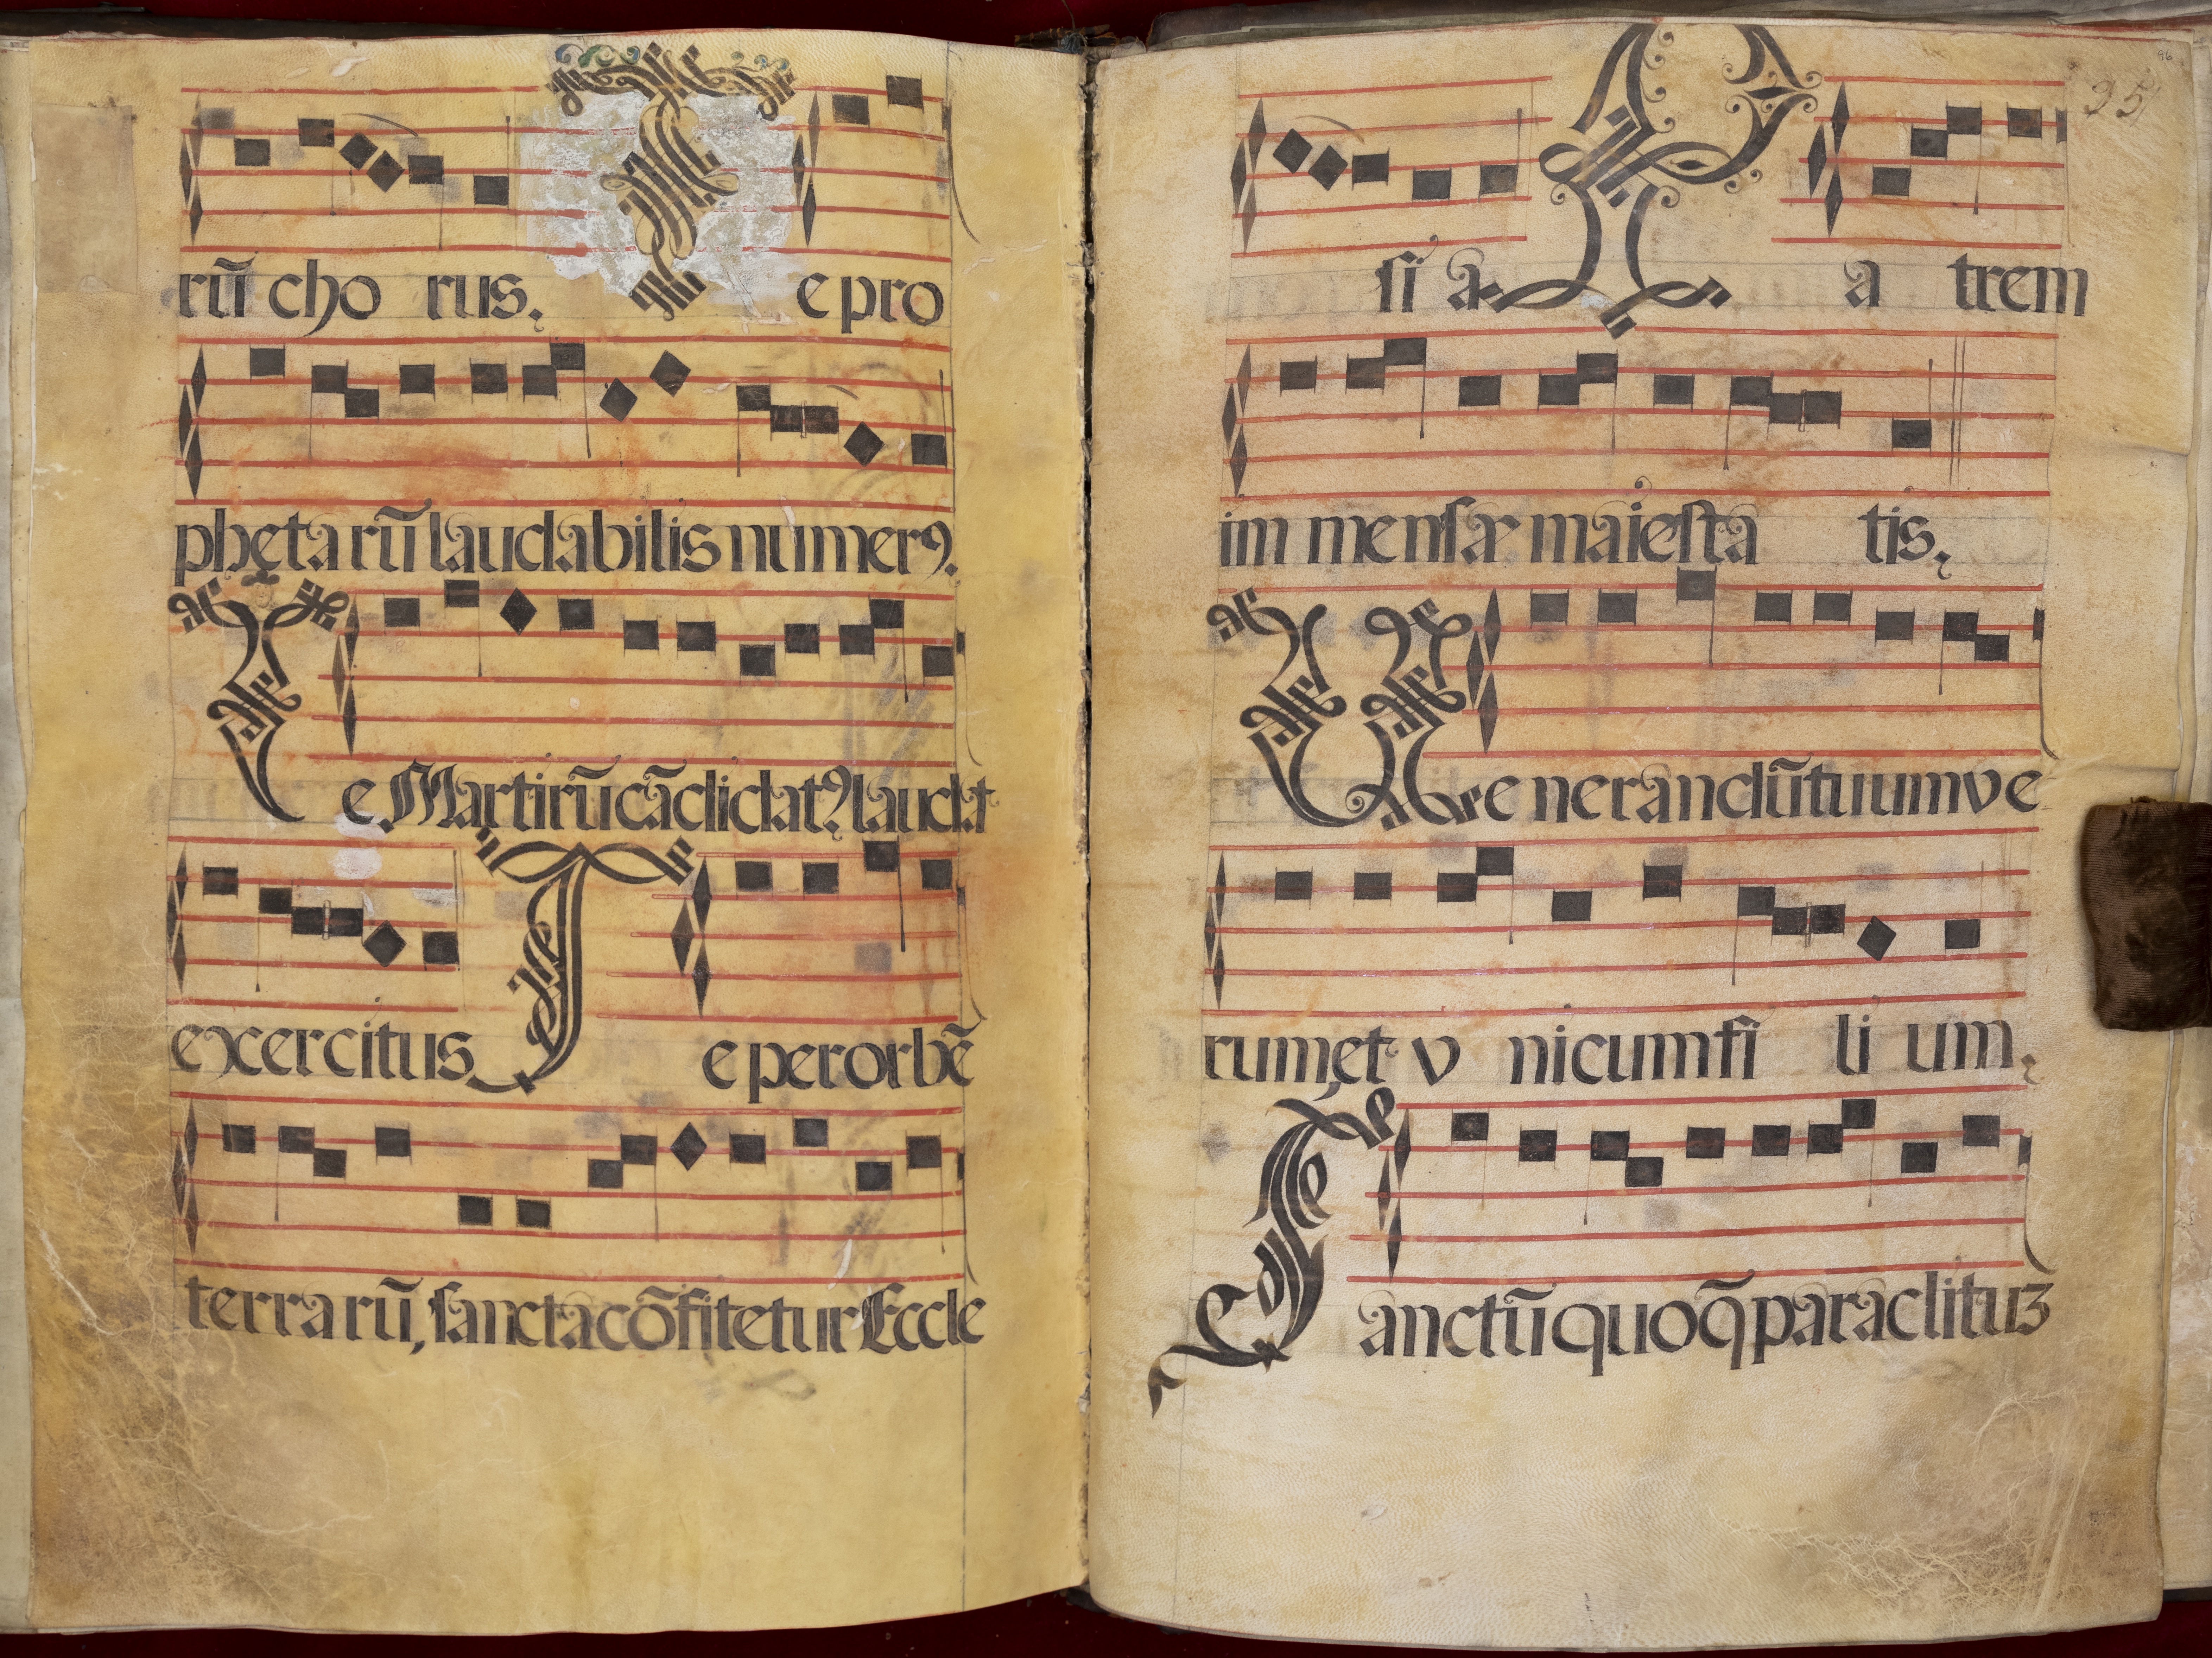 rũ cho rus. T e pro
pheta rũ laudabilis numerꝰ.
T e Martirũ cãdidatꝰ laudat
exercitus T e per orbẽ
terra rũ, ſancta cõfitetur Eccle
95
ſi a P a trem
im menſæ maieſta tis.
V e nerandũ tuum ve
rum, et v nicum fi li um.
S anctũ quoq̃ paraclituʒ